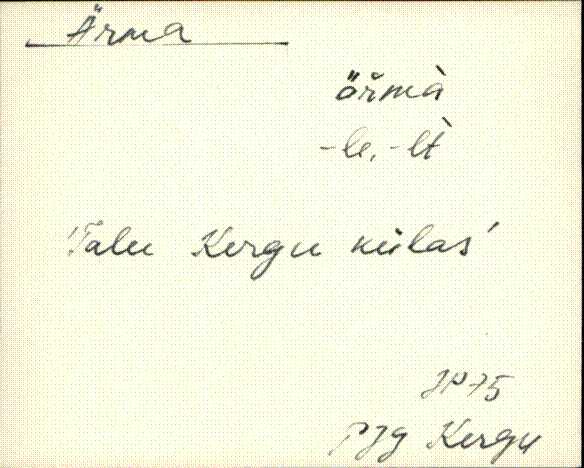 Ärma
öřmà
-le, -lt̀
'Talu Kergu külas'
JP 75
PJg Kergu